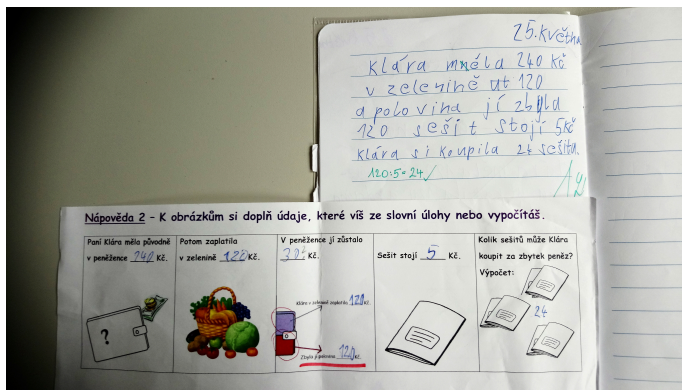 25. května
Klára mněla 240 Kč
v zelenině ut 120
a polovina jí zbyla
120 sešit stojí 5kč
Klára si koupila 24 sešitů.
120:5=24 ✓
Nápověda 2 – K obrázkům si doplň údaje, které víš ze slovní úlohy nebo vypočítáš.
Paní Klára měla původně
v peněžence 240 Kč.
?
Potom zaplatila
v zelenině 120 Kč.
V peněžence jí zůstalo
Kč.
Klára v zelenině zaplatila 120 Kč.
Zbyla jí polovina 120 Kč.
Sešit stojí 5 Kč.
Kolik sešitů může Klára
koupit za zbytek peněz?
Výpočet:
24